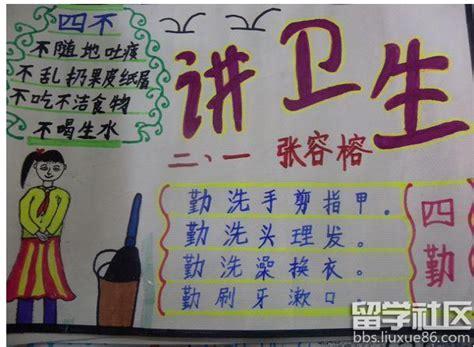 四不
不随地吐痰
不乱扔果皮纸屑
不吃不洁食物
不喝生水
讲卫生
二、一 张容榕
勤洗手剪指甲。
勤洗头理发。
勤洗澡换衣。
勤刷牙漱口。
四勤
留学社区
bbs.liuxue86.com